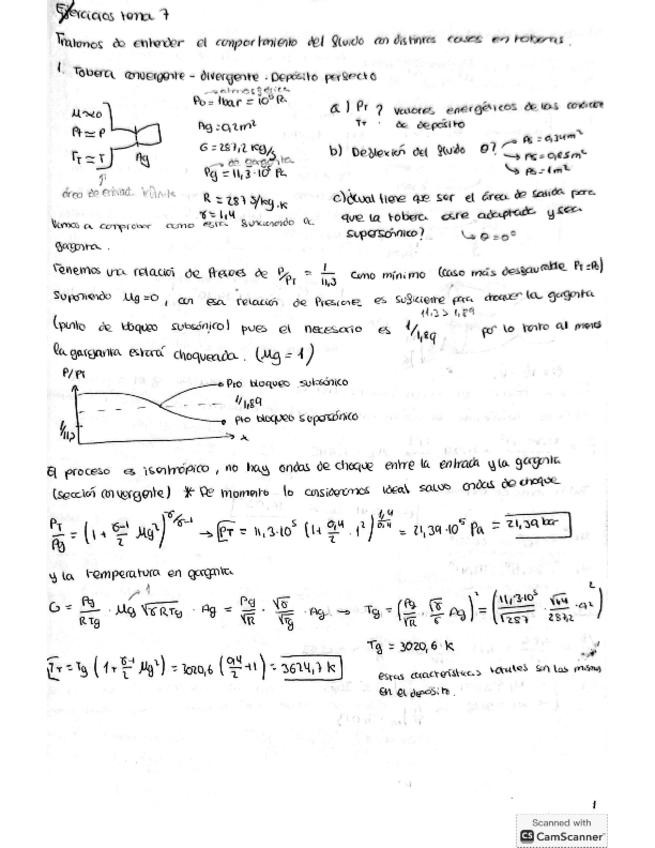 Ejercicios tema 7
Tratamos de entender el comportamiento del fluido en distintos casos en toberas.
1. Tobera convergente - divergente. Depósito perfecto
μ≈0
Pt ≃ P
Tt ≃ T
Ag
área de entrad. infinita
atmosférica
P0 = 1bar = 10⁵ Pa
Ag = 0,2m²
G = 287,2 kg/s
de garganta
Pg = 11,3·10⁵ Pa
R = 287 J/kg·K
γ = 1,4
a) Pt Tt ? valores energéticos de las
de depósito
b) Deflexión del fluido θ? As = 0,34m²
As = 0,85m²
As = 1m²
c) ¿Cual tiene que ser el área de salida para
que la tobera esté adaptada y sea
supersónico? ↳ θ = 0°
Vamos a comprobar como está funcionando la
garganta.
Tenemos una relación de Presiones de P/Pt = 1/11,3 como mínimo (caso más desfavorable Pt = Pg)
Suponiendo Mg = 0, con esa relación de Presiones es suficiente para chocar la garganta
11,3 > 1,89
(punto de bloqueo subsónico) pues el necesario es 1/1,89 por lo tanto al menos
la garganta estará choqueada. (Mg = 1)
P/Pt
Pto bloqueo subsónico
1/1,89
Pto bloqueo supersónico
1/11,3
x
El proceso es isentrópico, no hay ondas de choque entre la entrada y la garganta
(sección convergente) * De momento lo consideramos ideal salvo ondas de choque
PT/Pg = (1 + γ-1/2 Mg²)^γ/γ-1 → PT = 11,3·10⁵ (1 + 0,4/2 · 1²)^1,4/0,4 = 21,39·10⁵ Pa = 21,39 bar
y la temperatura en garganta
G = Pg/RTg · Mg √γRTg · Ag = Pg/√R · √γ/√Tg · Ag → Tg = (Pg/√R · √γ/G Ag)² = (11,3·10⁵/√287 · √1,4/287,2 · 0,2)²
Tg = 3020,6 · K
Tt = Tg (1 + γ-1/2 Mg²) = 3020,6 (0,4/2 + 1) = 3624,7 K
estas características totales son las mismas
en el depósito.
1
Scanned with
CS CamScanner